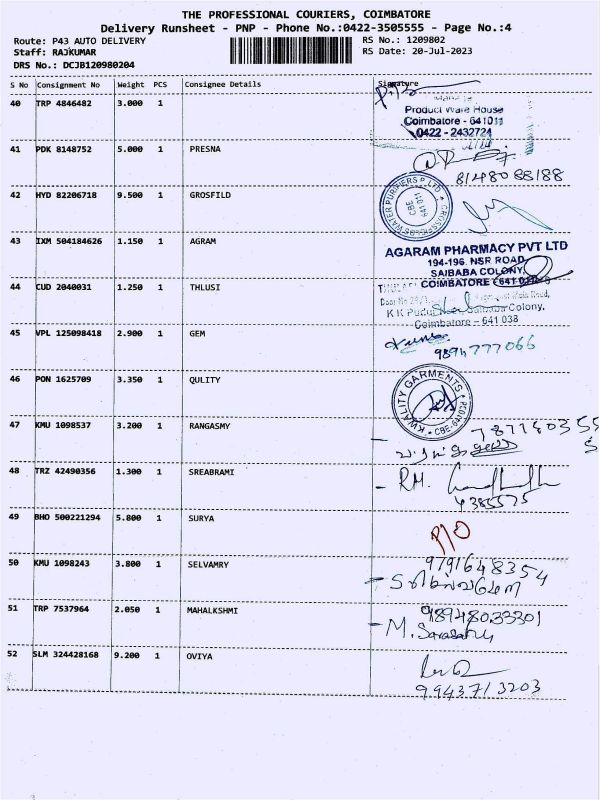 THE PROFESSIONAL COURIERS, COIMBATORE
Delivery Runsheet - PNP - Phone No.:0422-3505555 - Page No.:4
Route: P43 AUTO DELIVERY RS No.: 1209802
Staff: RAJKUMAR RS Date: 20-Jul-2023
DRS No.: DCJB120980204
S No Consignment No Weight PCS Consignee Details Signature
40 TRP 4846482 3.000 1
Product Ware House
Coimbatore - 641011
0422 - 2432724
41 PDK 8148752 5.000 1 PRESNA
8148088188
42 HYD 82206718 9.500 1 GROSFILD
CBE
641 011
43 IXM 504184626 1.150 1 AGRAM
AGARAM PHARMACY PVT LTD
194-196. NSR ROAD,
SAIBABA COLONY,
COIMBATORE
44 CUD 2040031 1.250 1 THLUSI
K K Pudur, Saibaba Colony,
Coimbatore - 641 038
45 VPL 125098418 2.900 1 GEM
46 PON 1625709 3.350 1 QULITY
KWALITY GARMENTS
47 KMU 1098537 3.200 1 RANGASMY
48 TRZ 42490356 1.300 1 SREABRAMI
RM.
4385575
49 BHO 500221294 5.800 1 SURYA
50 KMU 1098243 3.800 1 SELVAMRY
9791648354
51 TRP 7537964 2.050 1 MAHALKSHMI
98948033301
52 SLM 324428168 9.200 1 OVIYA
9943713203